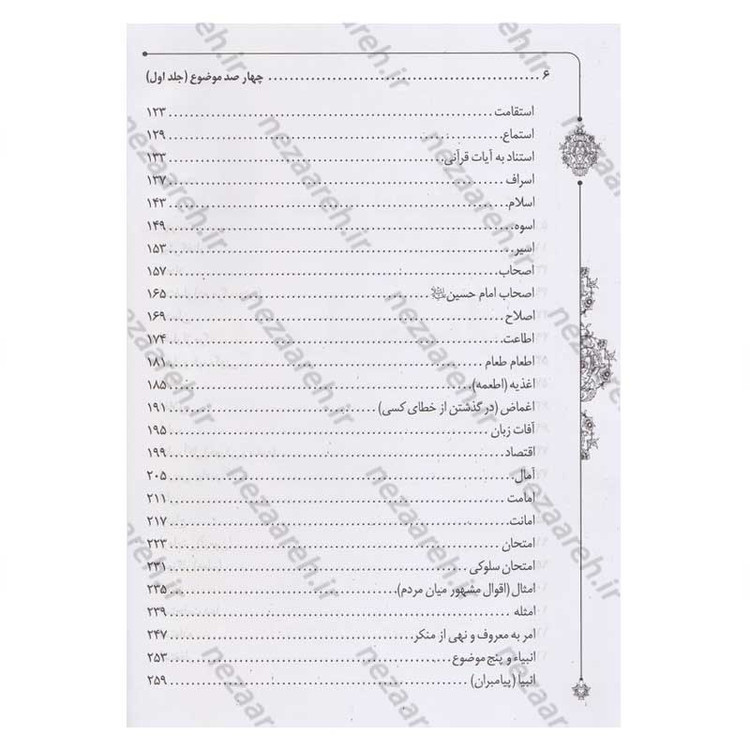 ۶ ........ چهار صد موضوع (جلد اول)
استقامت ........ ۱۲۳
استماع ........ ۱۲۹
استناد به آیات قرآنی ........ ۱۳۳
اسراف ........ ۱۳۷
اسلام ........ ۱۴۳
اسوه ........ ۱۴۹
اسیر ........ ۱۵۳
اصحاب ........ ۱۵۷
اصحاب امام حسین ........ ۱۶۵
اصلاح ........ ۱۶۹
اطاعت ........ ۱۷۴
اطعام طعام ........ ۱۸۱
اغذیه (اطعمه) ........ ۱۸۵
اغماض (در گذشتن از خطای کسی) ........ ۱۹۱
آفات زبان ........ ۱۹۵
اقتصاد ........ ۱۹۹
آمال ........ ۲۰۵
امامت ........ ۲۱۱
امانت ........ ۲۱۷
امتحان ........ ۲۲۳
امتحان سلوکی ........ ۲۳۱
امثال (اقوال مشهور میان مردم) ........ ۲۳۵
امثله ........ ۲۳۹
امر به معروف و نهی از منکر ........ ۲۴۷
انبیاء و پنج موضوع ........ ۲۵۳
انبیا (پیامبران) ........ ۲۵۹
nezaareh.ir